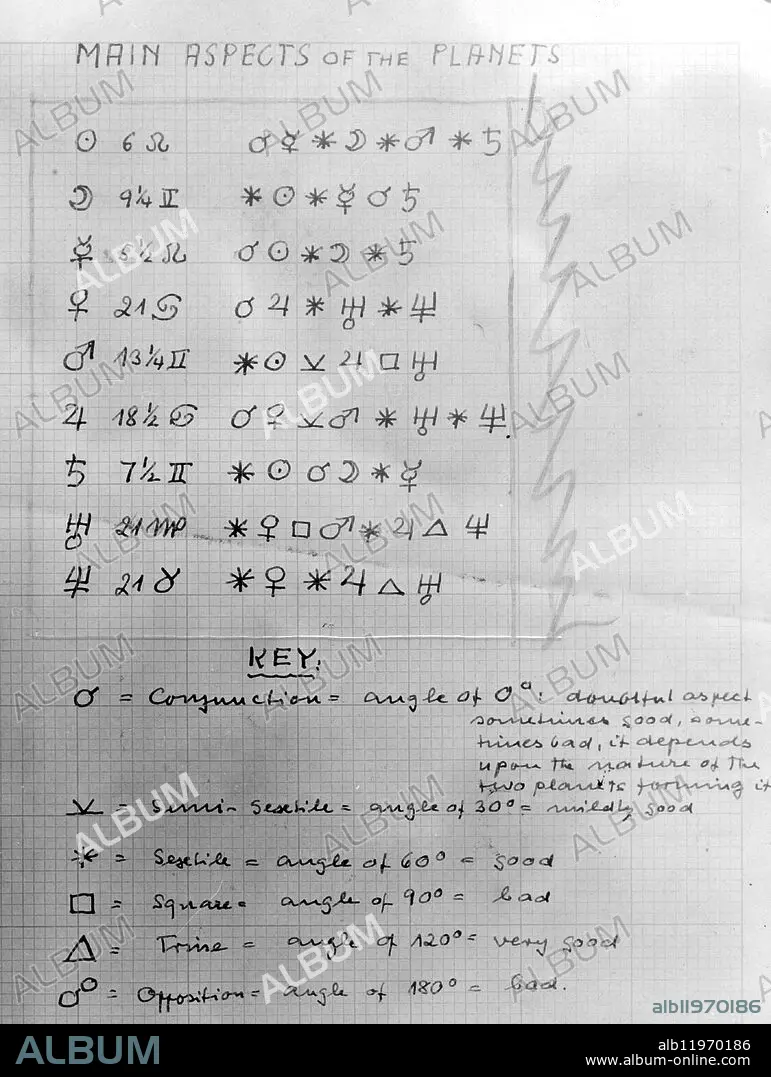 MAIN ASPECTS OF THE PLANETS
☉ 6 ♌ ☌ ☿ ⚹ ☽ ⚹ ♂ ⚹ ♄
☽ 9¼ ♊ ⚹ ☉ ⚹ ☿ ☌ ♄
☿ 5½ ♌ ☌ ☉ ⚹ ☽ ⚹ ♄
♀ 21 ♋ ☌ ♃ ⚹ ♅ ⚹ ♆
♂ 13¼ ♊ ⚹ ☉ ⚺ ♃ □ ♅
♃ 18½ ♋ ☌ ♀ ⚺ ♂ ⚹ ♅ ⚹ ♆.
♄ 7½ ♊ ⚹ ☉ ☌ ☽ ⚹ ☿
♅ 21 ♍ ⚹ ♀ □ ♂ ⚹ ♃ △ ♆
♆ 21 ♉ ⚹ ♀ ⚹ ♃ △ ♅
KEY:
☌ = Conjunction = angle of 0°: doubtful aspect
sometimes good, some-
times bad, it depends
upon the nature of the
two planets forming it
⚺ = Semi-Sextile = angle of 30° = mildly good
⚹ = Sextile = angle of 60° = good
□ = Square = angle of 90° = bad
△ = Trine = angle of 120° = very good
☍ = Opposition = angle of 180° = bad.
alb11970186
ALBUM
alb11970186
www.album-online.com